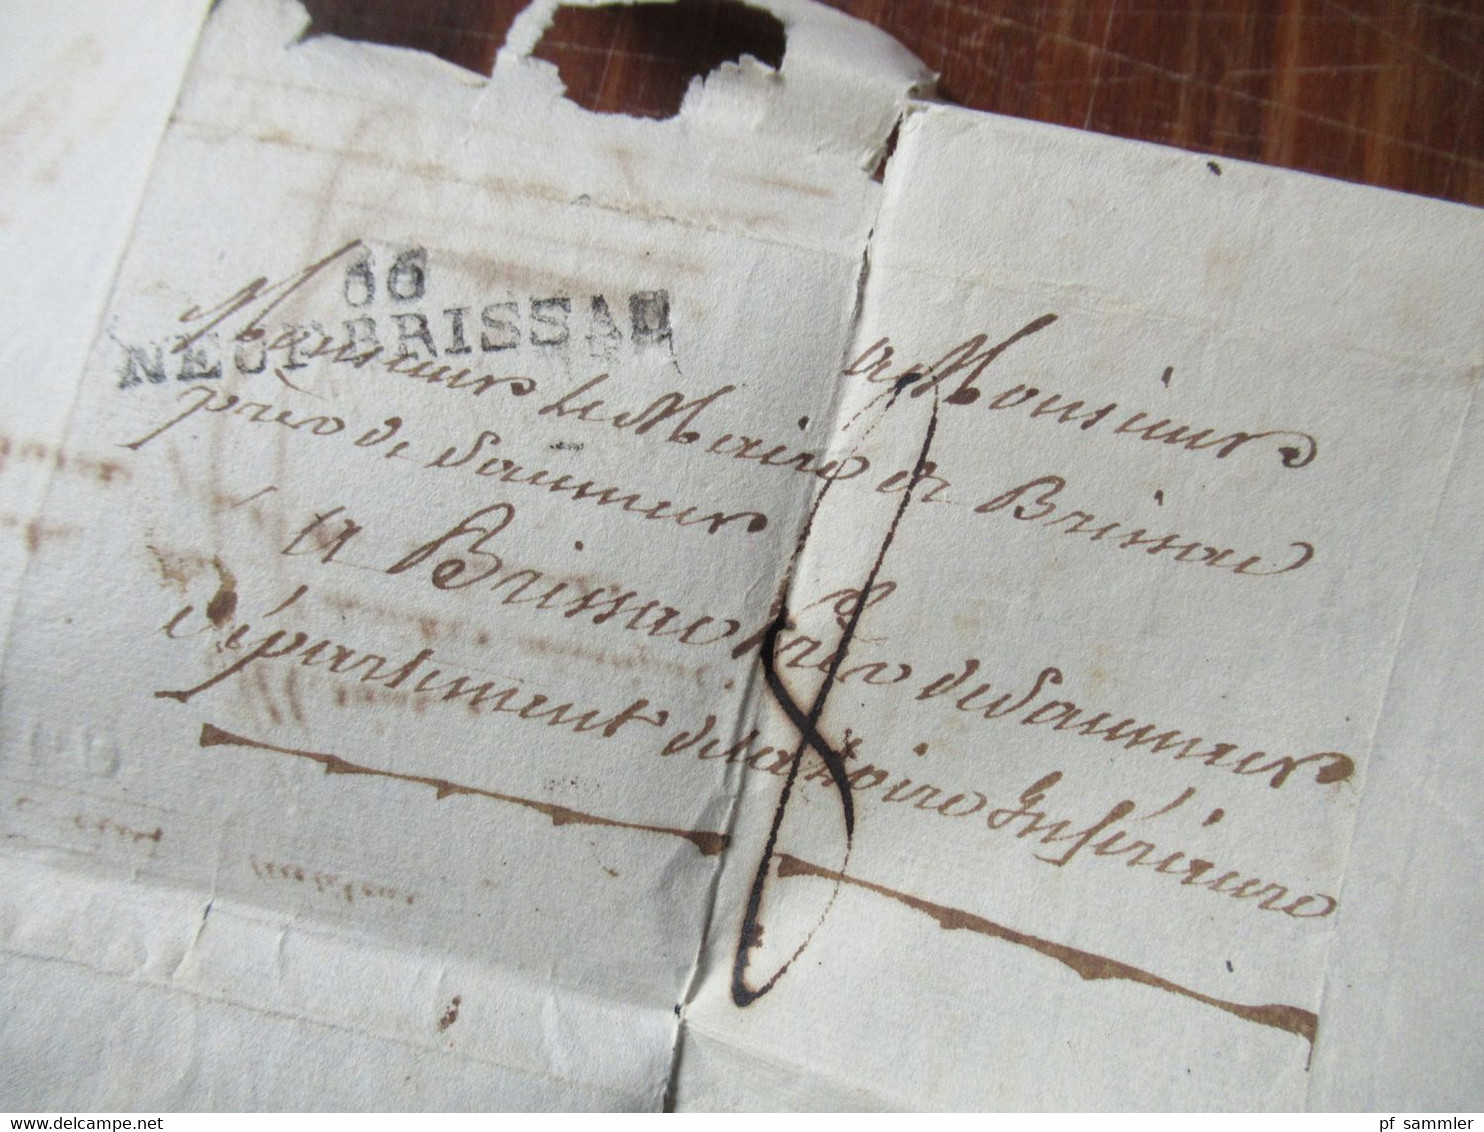 66
NEUFBRISSAC
a Monsieur
Monsieur le Maire de Brissac
près de Saumur
a Brissac près de Saumur
département de la Loire Inférieure
8
www.delcampe.net
pf_sammler